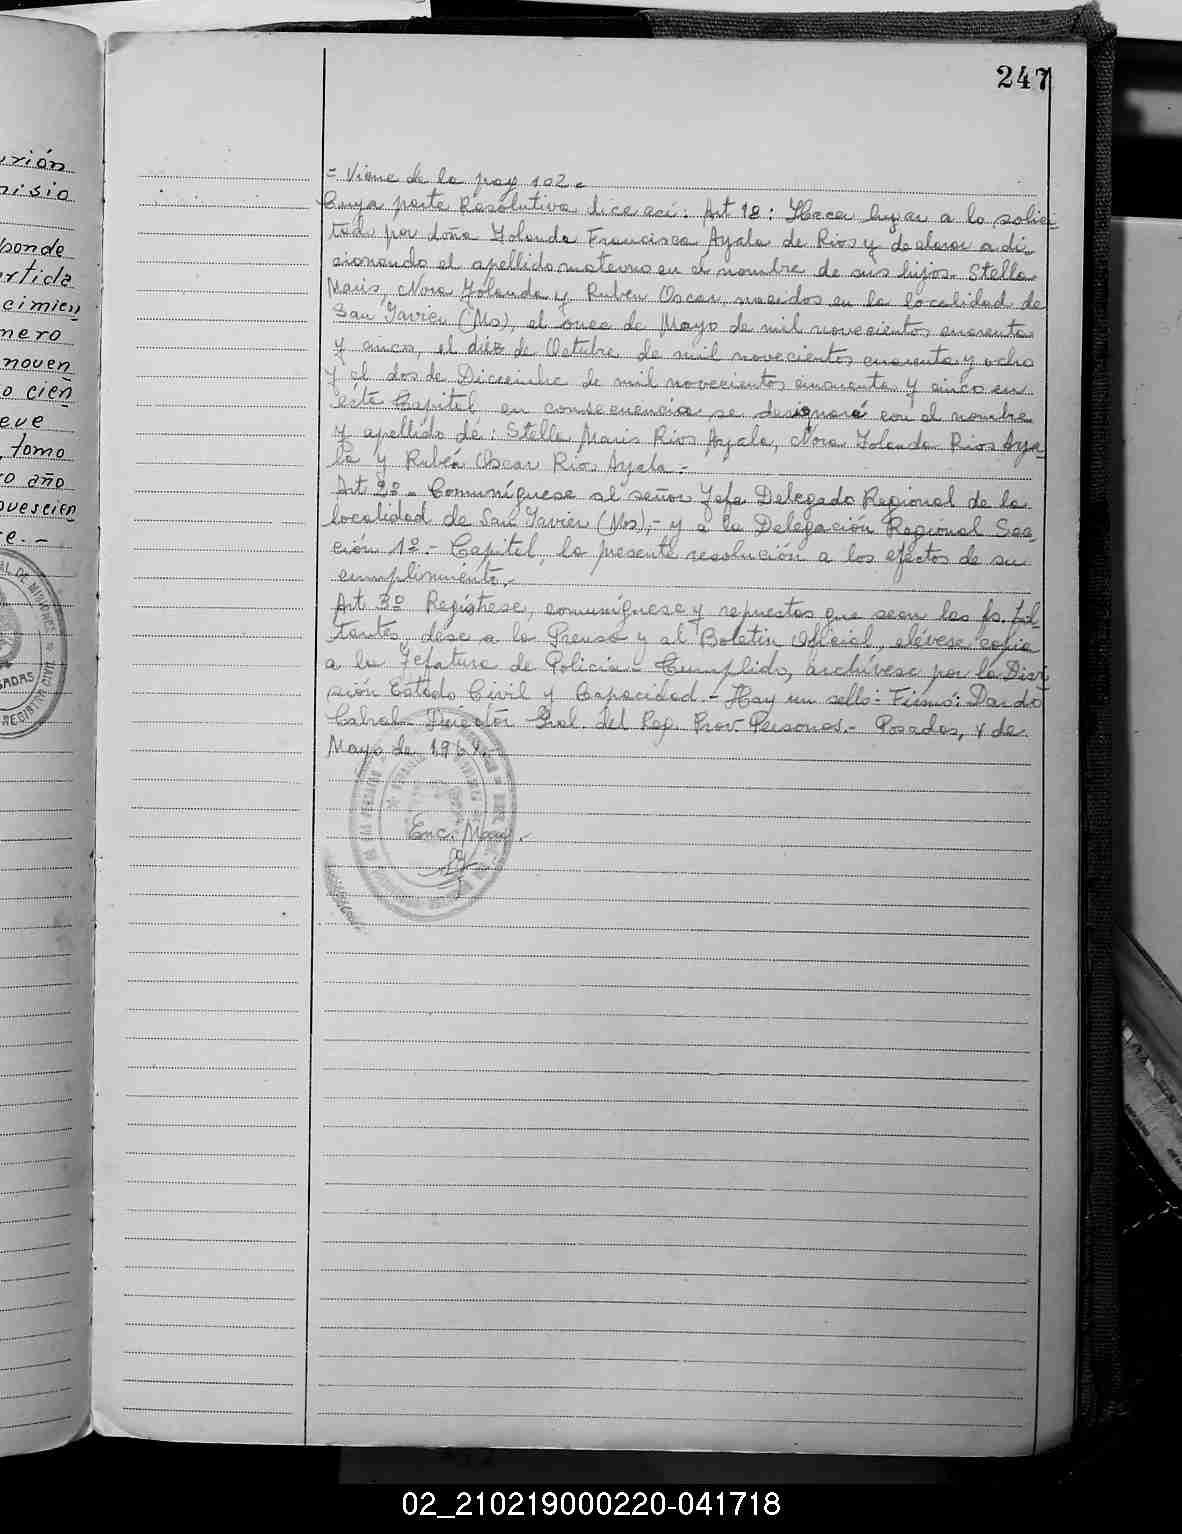 247
urión
nisio
ponde
artida
cimien
nero
noven
o cien
eve
, tomo
ro año
ovescien
e.-
- Viene de la pag 102.
Cuya parte Resolutiva dice así: Art 1º: Hacer lugar a lo solici-
tado por doña Yolanda Francisca Ayala de Rios y declarar adi-
cionando el apellido materno en el nombre de sus hijos Stella
Maris, Nora Yolanda y Ruben Oscar, nacidos en la localidad de
San Javier (Ms), el once de Mayo de mil novecientos cuarenta
y cinco, el diez de Octubre de mil novecientos cuarenta y ocho
y el dos de Diciembre de mil novecientos cincuenta y cinco en
ésta Capital en consecuencia se designará con el nombre
y apellido de: Stella Maris Rios Ayala, Nora Yolanda Rios Aya-
la y Rubén Oscar Rios Ayala.-
Art 2º- Comuníquese al señor Jefe Delegado Regional de la
localidad de San Javier (Ms),- y a la Delegación Regional Sec-
ción 1º- Capital, la presente resolución a los efectos de su
cumplimiento.-
Art 3º Regístrese, comuníquese y repuestas que sean las fs. fal-
tantes, dese a la Prensa y al Boletín Oficial, elévese copia
a la Jefatura de Policía.- Cumplido, archívese por la Divi-
sión Estado Civil y Capacidad.- Hay un sello: Firmo: Dardo
Cabral- Director Gral. del Reg. Prov. Personas.- Posadas, de
Mayo de
Enc.
02_210219000220-041718